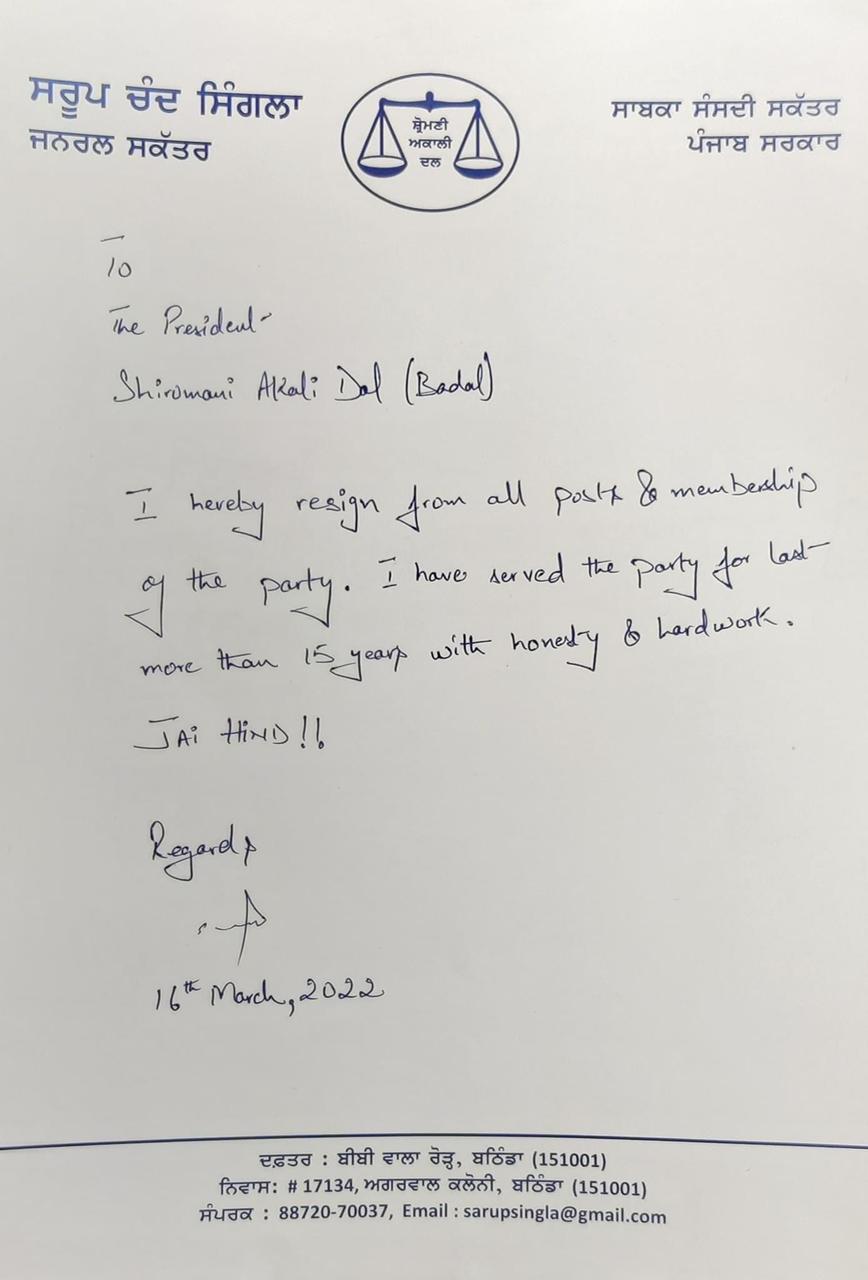 ਸਰੂਪ ਚੰਦ ਸਿੰਗਲਾ
ਜਨਰਲ ਸਕੱਤਰ
ਸ਼੍ਰੋਮਣੀ
ਅਕਾਲੀ
ਦਲ
ਸਾਬਕਾ ਸੰਸਦੀ ਸਕੱਤਰ
ਪੰਜਾਬ ਸਰਕਾਰ
To
The President
Shiromani Akali Dal (Badal)
I hereby resign from all posts & membership
of the party. I have served the party for last
more than 15 years with honesty & hardwork.
JAI HIND!!
Regards
16th March, 2022
ਦਫ਼ਤਰ : ਬੀਬੀ ਵਾਲਾ ਰੋਡ਼, ਬਠਿੰਡਾ (151001)
ਨਿਵਾਸ: # 17134, ਅਗਰਵਾਲ ਕਲੋਨੀ, ਬਠਿੰਡਾ (151001)
ਸੰਪਰਕ : 88720-70037, Email : sarupsingla@gmail.com